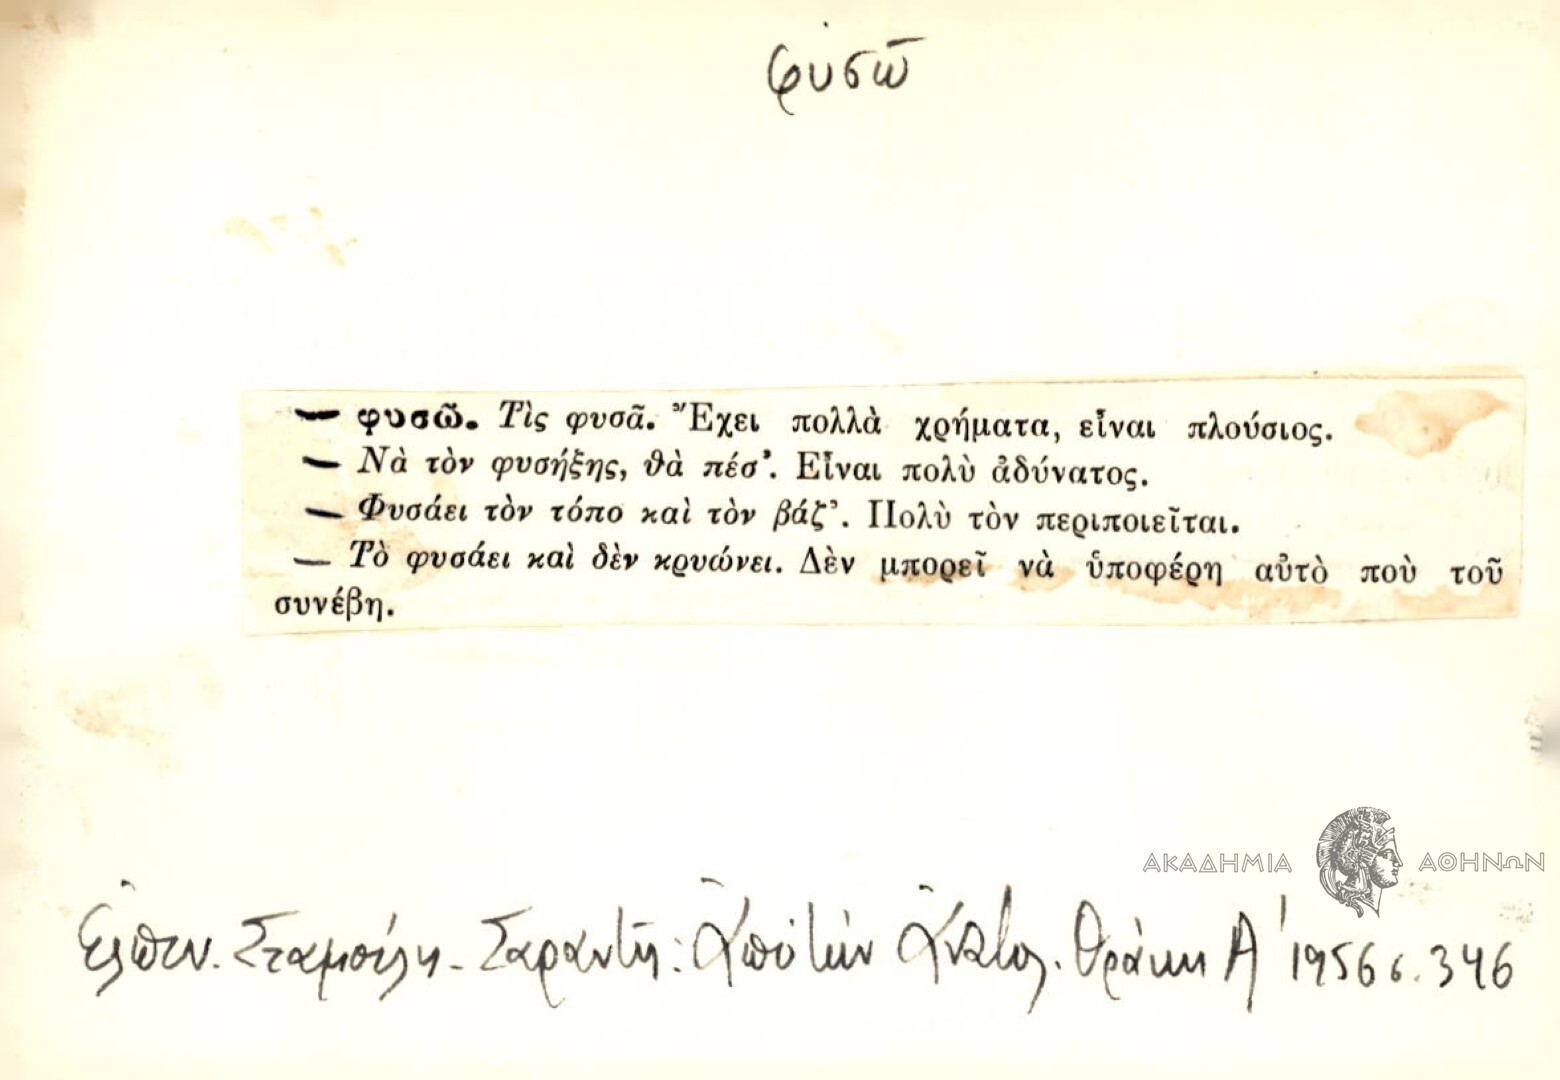 φυσῶ
— φυσῶ. Τὶς φυσᾶ. Ἔχει πολλὰ χρήματα, εἶναι πλούσιος.
— Νὰ τὸν φυσήξης, θὰ πέσ'. Εἶναι πολὺ ἀδύνατος.
— Φυσάει τὸν τόπο καὶ τὸν βάζ'. Πολὺ τὸν περιποιεῖται.
— Τὸ φυσάει καὶ δὲν κρυώνει. Δὲν μπορεῖ νὰ ὑποφέρη αὐτὸ ποὺ τοῦ
συνέβη.
ΑΚΑΔΗΜΙΑ ΑΘΗΝΩΝ
Ἐλπιν. Σταμούλη - Σαραντῆ: Ἀπὸ τὴν Ἀνατολ. Θράκη Α' 1956 σ. 346